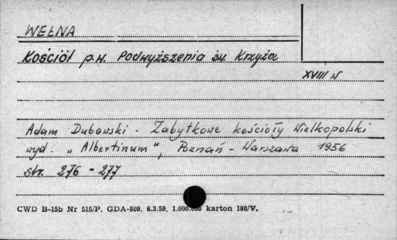 WEŁNA
Kościół p.w. Podwyższenia św Krzyża
XVIII w
Adam Dubowski - Zabytkowe kościoły Wielkopolski
wyd. „Albertinum", Poznań - Warszawa 1956
str. 276 - 277
CWD B-15b Nr 515/P. GDA-809. 6.3.59. 1.000.000 karton 180/V.